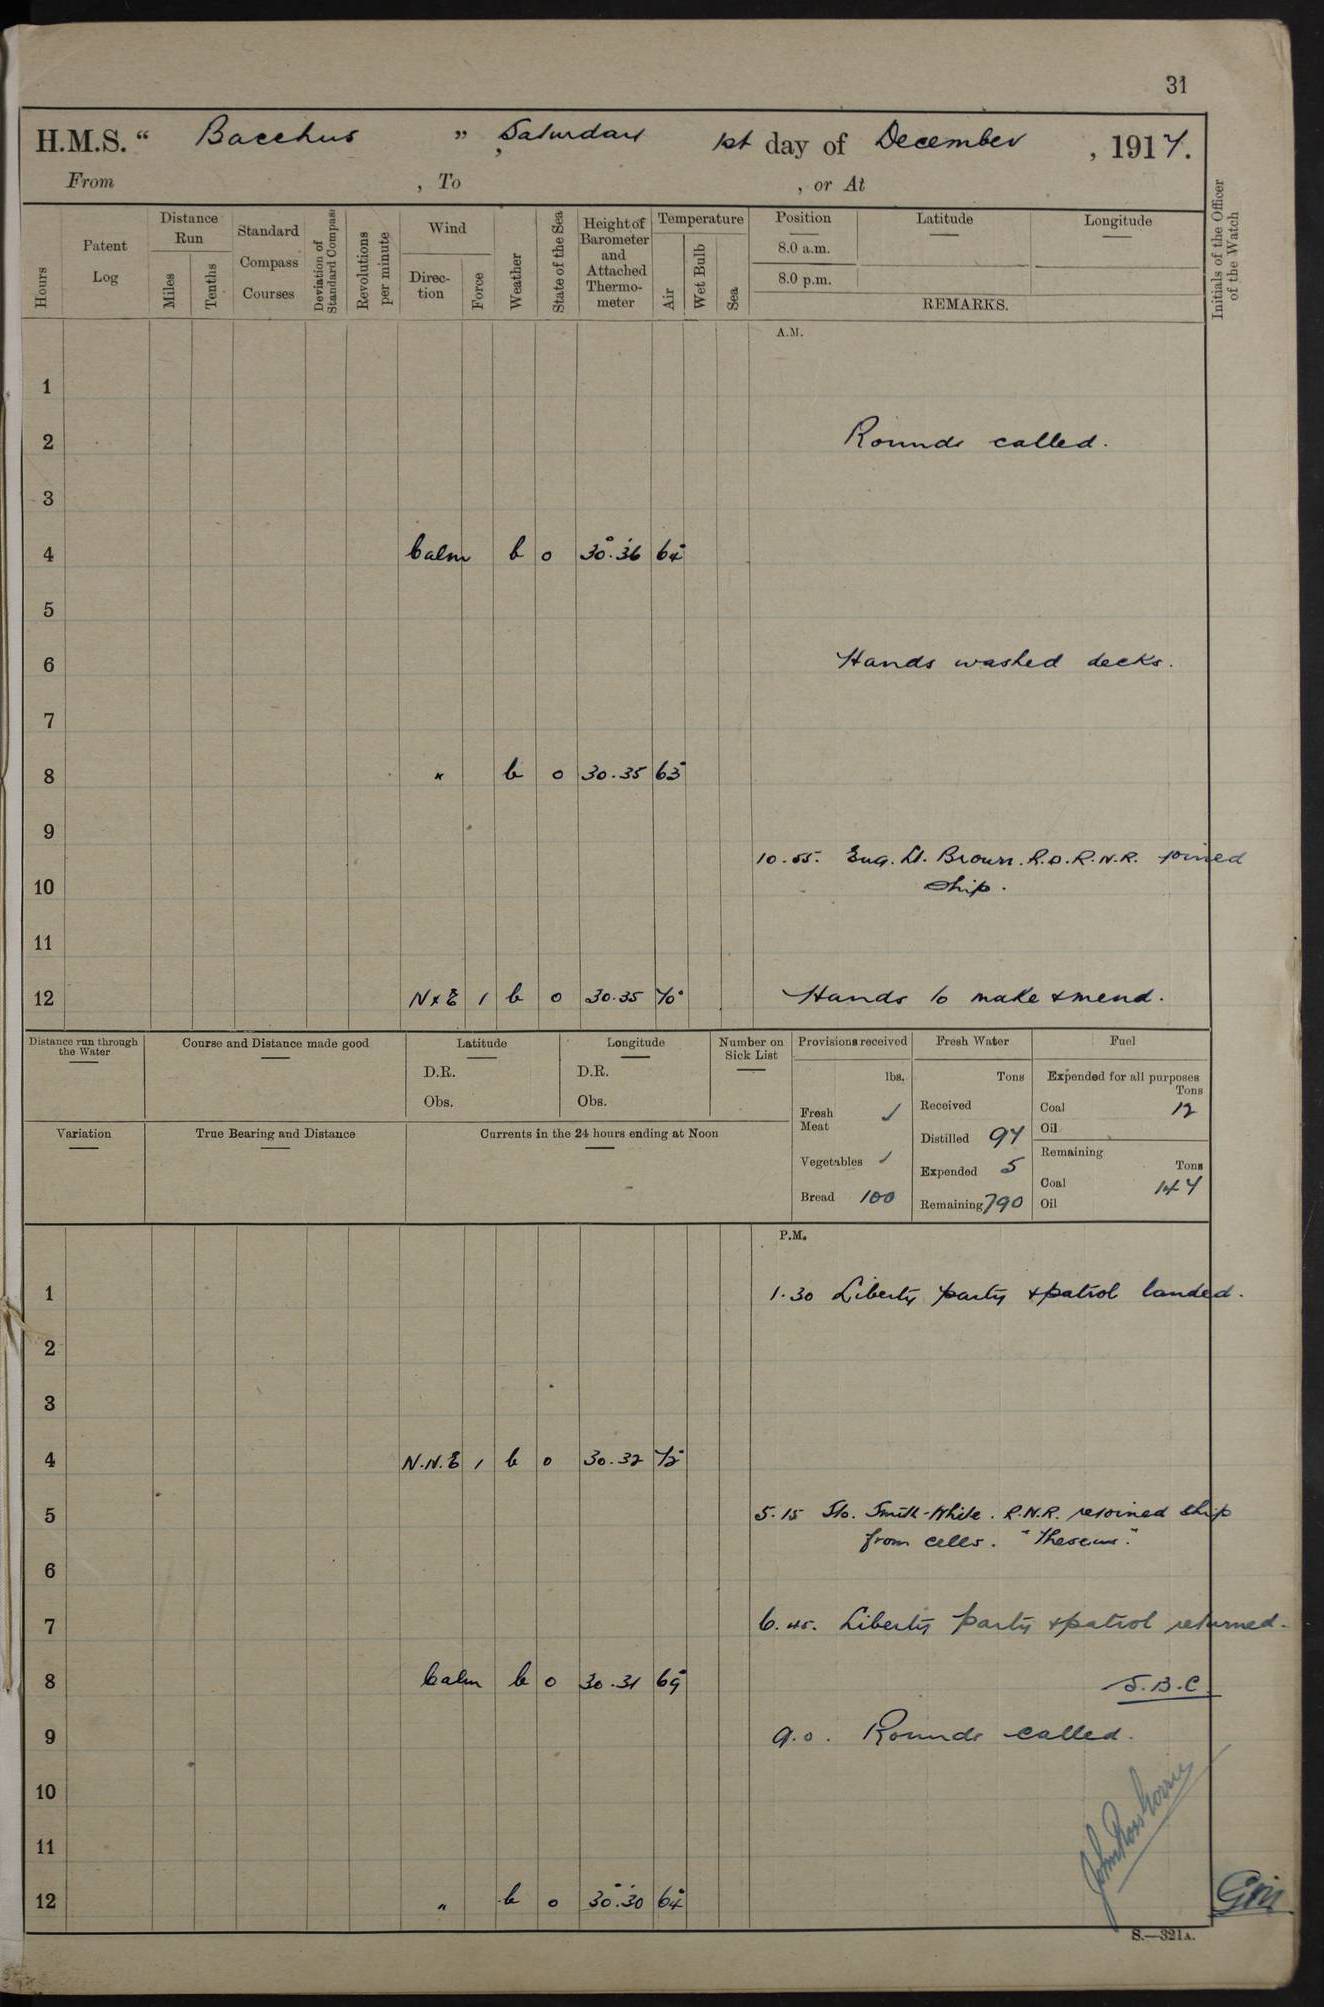 31
H.M.S. “ Bacchus ” , Saturday 1st day of December , 1917.
From , To , or At
Hours
Patent Log
Distance Run
Miles
Tenths
Standard Compass Courses
Deviation of Standard Compass
Revolutions per minute
Wind
Direc-tion
Force
Weather
State of the Sea
Height of Barometer and Attached Thermo-meter
Temperature
Air
Wet Bulb
Sea
Position Latitude Longitude
8.0 a.m.
8.0 p.m.
REMARKS.
Initials of the Officer of the Watch
A.M.
1
2 Rounds called.
3
4 Calm b 0 30.36 64
5
6 Hands washed decks.
7
8 " b 0 30.35 63
9
10.55. Eng. Lt. Brown. R.D. R.N.R. joined
10 ship.
11
12 N x E 1 b 0 30.35 70 Hands to make & mend.
Distance run through the Water
Course and Distance made good
Latitude
D.R.
Obs.
Longitude
D.R.
Obs.
Number on Sick List
Provisions received
lbs.
Fresh Meat
Vegetables
Bread 100
Fresh Water
Tons
Received
Distilled 97
Expended 5
Remaining 790
Fuel
Expended for all purposes
Tons
Coal 12
Oil
Remaining
Tons
Coal 147
Oil
Variation
True Bearing and Distance
Currents in the 24 hours ending at Noon
P.M.
1 1.30 Liberty party & patrol landed.
2
3
4 N.N.E 1 b 0 30.32 72
5 5.15 Sto. Smith-White. R.N.R. rejoined ship
from cells. "Theseus".
6
7 6.45. Liberty party & patrol returned.
8 Calm b 0 30.31 69 S.B.C
9 9.0. Rounds called.
10
11
12 " b 0 30.30 64
S.—321A.